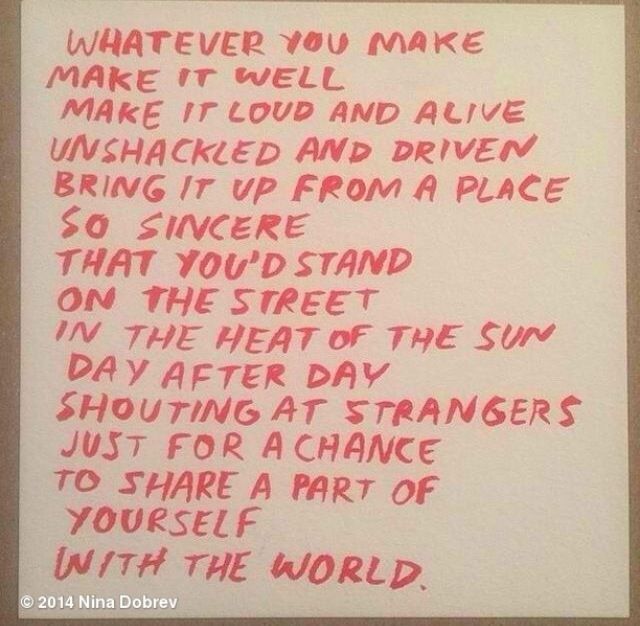 WHATEVER YOU MAKE
MAKE IT WELL
MAKE IT LOUD AND ALIVE
UNSHACKLED AND DRIVEN
BRING IT UP FROM A PLACE
SO SINCERE
THAT YOU'D STAND
ON THE STREET
IN THE HEAT OF THE SUN
DAY AFTER DAY
SHOUTING AT STRANGERS
JUST FOR A CHANCE
TO SHARE A PART OF
YOURSELF
WITH THE WORLD.
© 2014 Nina Dobrev